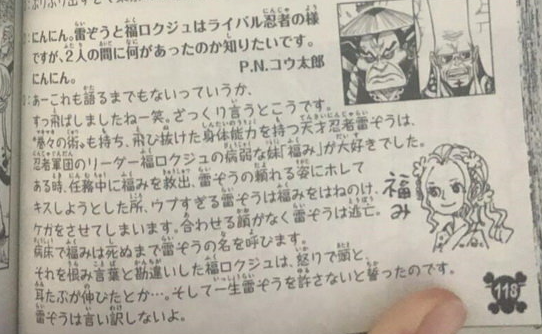 にんにん。雷ぞうと福ロクジュはライバル忍者の様
ですが、2人の間に何があったのか知りたいです。
にんにん。
P.N.コウ太郎
あーこれも語るまでもないっていうか、
すっ飛ばしましたねー笑。ざっくり言うとこうです。
"巻々の術"も持ち、飛び抜けた身体能力を持つ天才忍者雷ぞうは、
忍者軍団のリーダー福ロクジュの病弱な妹「福み」が大好きでした。
ある時、任務中に福みを救出、雷ぞうの頼れる姿にホレて
キスしようとした所、ウブすぎる雷ぞうは福みをはねのけ、
ケガをさせてしまいます。合わせる顔がなく雷ぞうは逃亡。
病床で福みは死ぬまで雷ぞうの名を呼びます。
それを恨み言葉と勘違いした福ロクジュは、怒りで頭と、
耳たぶが伸びたとか…。そして一生雷ぞうを許さないと誓ったのです。
雷ぞうは言い訳しないよ。
福み
118